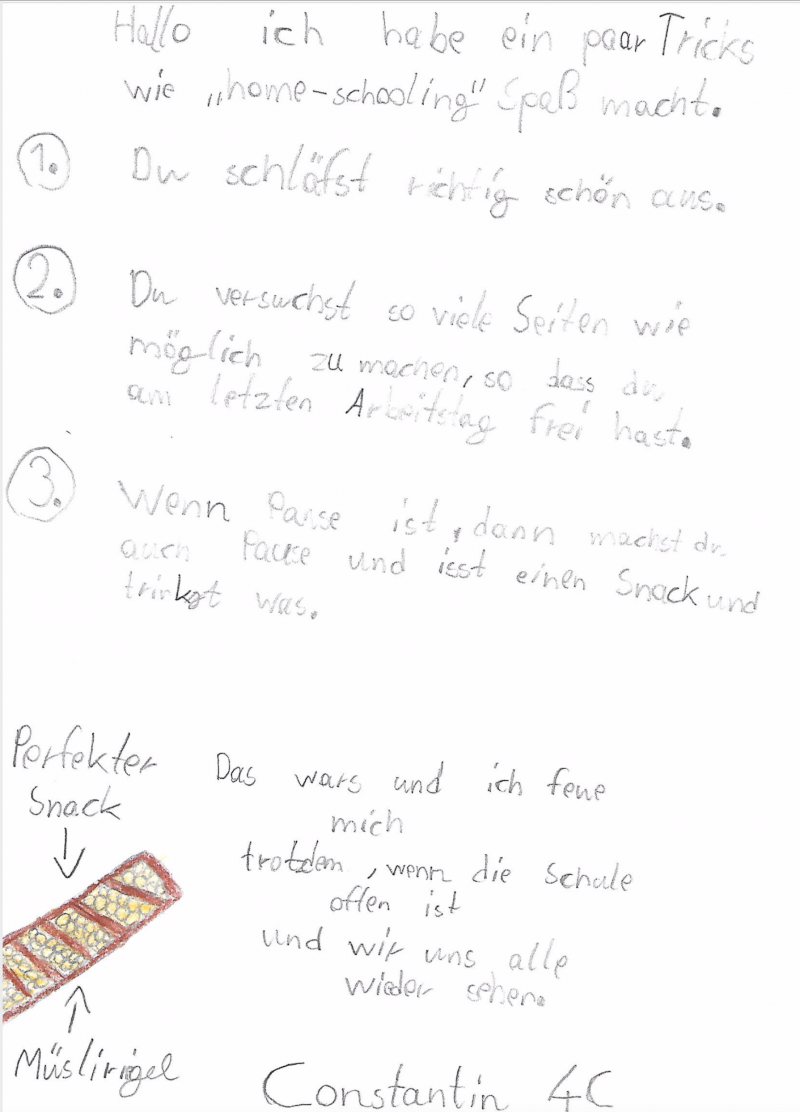 Hallo ich habe ein paar Tricks
wie „home-schooling" Spaß macht.
1. Du schläfst richtig schön aus.
2. Du versuchst so viele Seiten wie
möglich zu machen, so dass du
am letzten Arbeitstag frei hast.
3. Wenn Pause ist, dann machst du
auch Pause und isst einen Snack und
trinkst was.
Perfekter
Snack
Das wars und ich feue
mich
trotzdem, wenn die Schule
offen ist
und wir uns alle
wieder sehen.
Müslirigel
Constantin 4C